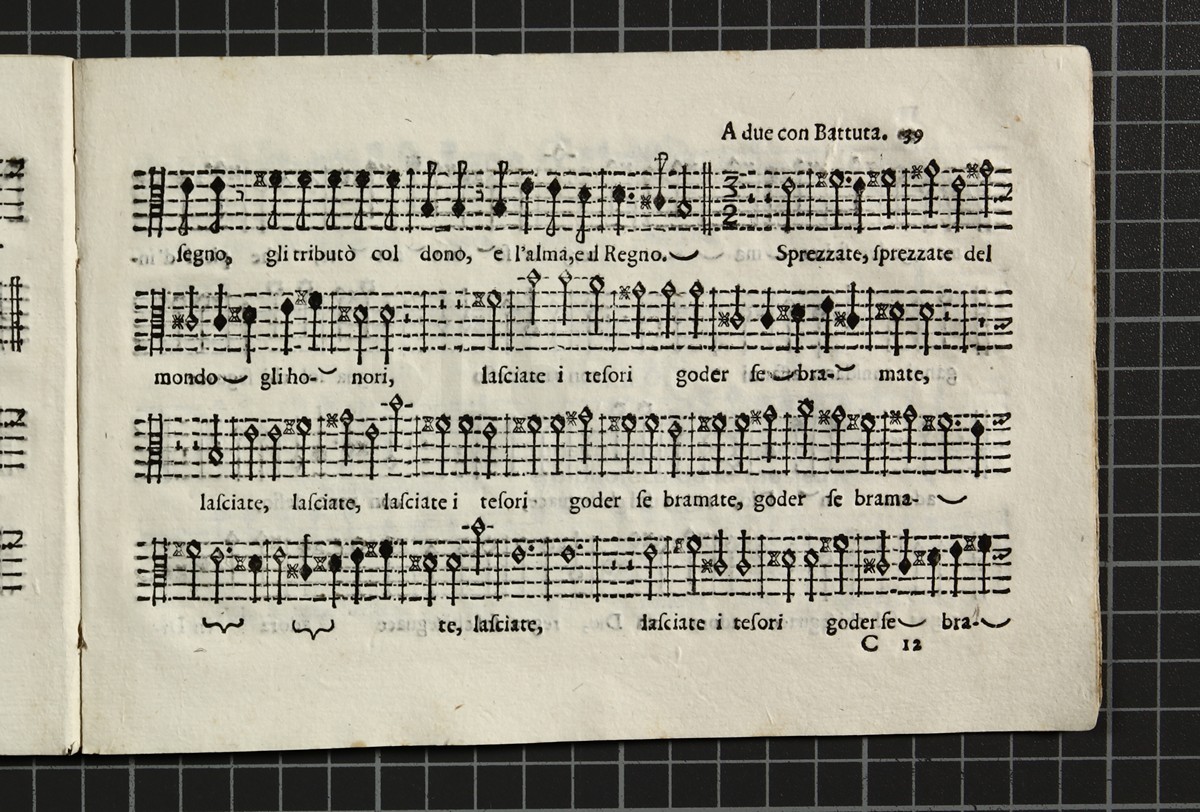 A due con Battuta. 39
3
2
ſegno, gli tributò col dono, e l'alma, e il Regno. Sprezzate, ſprezzate del
mondo gli ho- nori, laſciate i teſori goder ſe bra- mate,
laſciate, laſciate, laſciate i teſori goder ſe bramate, goder ſe brama-
te, laſciate, laſciate i teſori goder ſe bra-
C 12